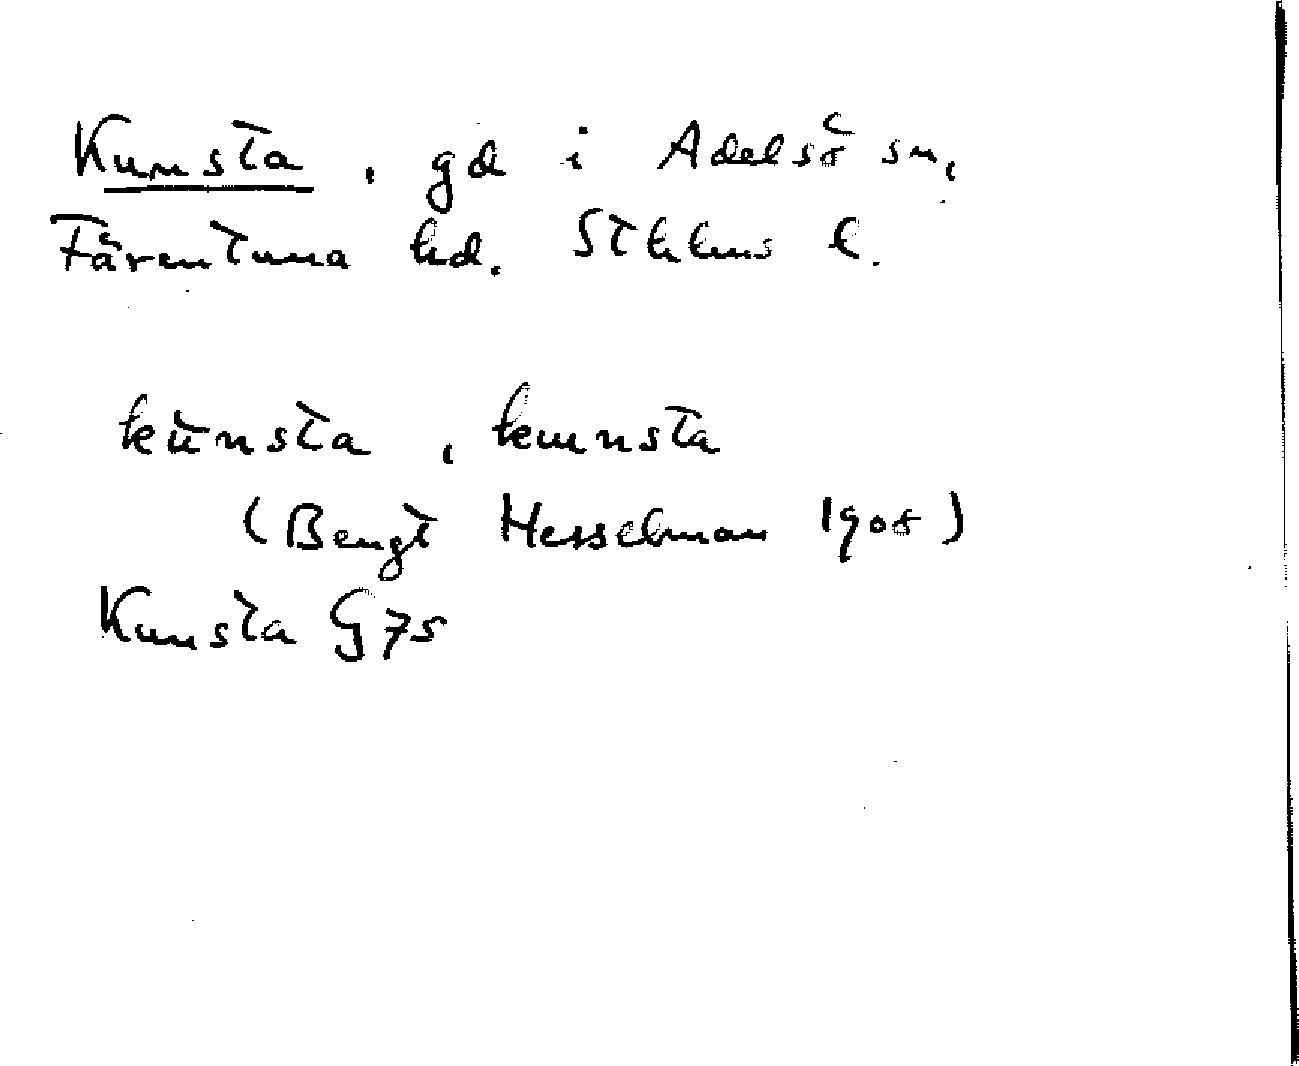 Kunsta, gd i Adelsö sn,
Färentuna hd. Sthlms l.
kūnsta, kumnsta
(Bengt Hesselman 1908)
Kunsta G 75